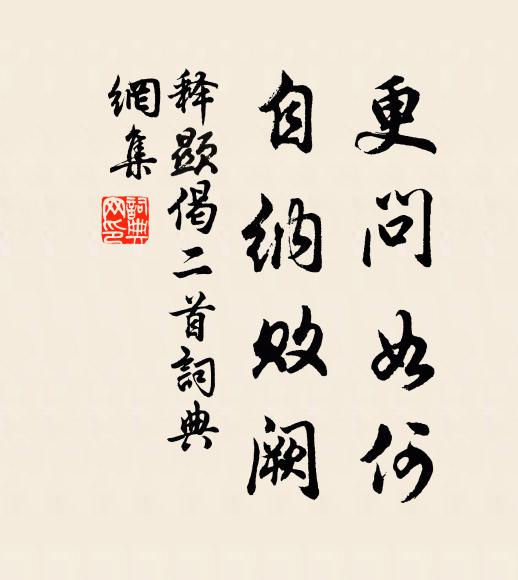 更问如何
自纳败阙
释显偈二首詞典
網集
詞典
网印